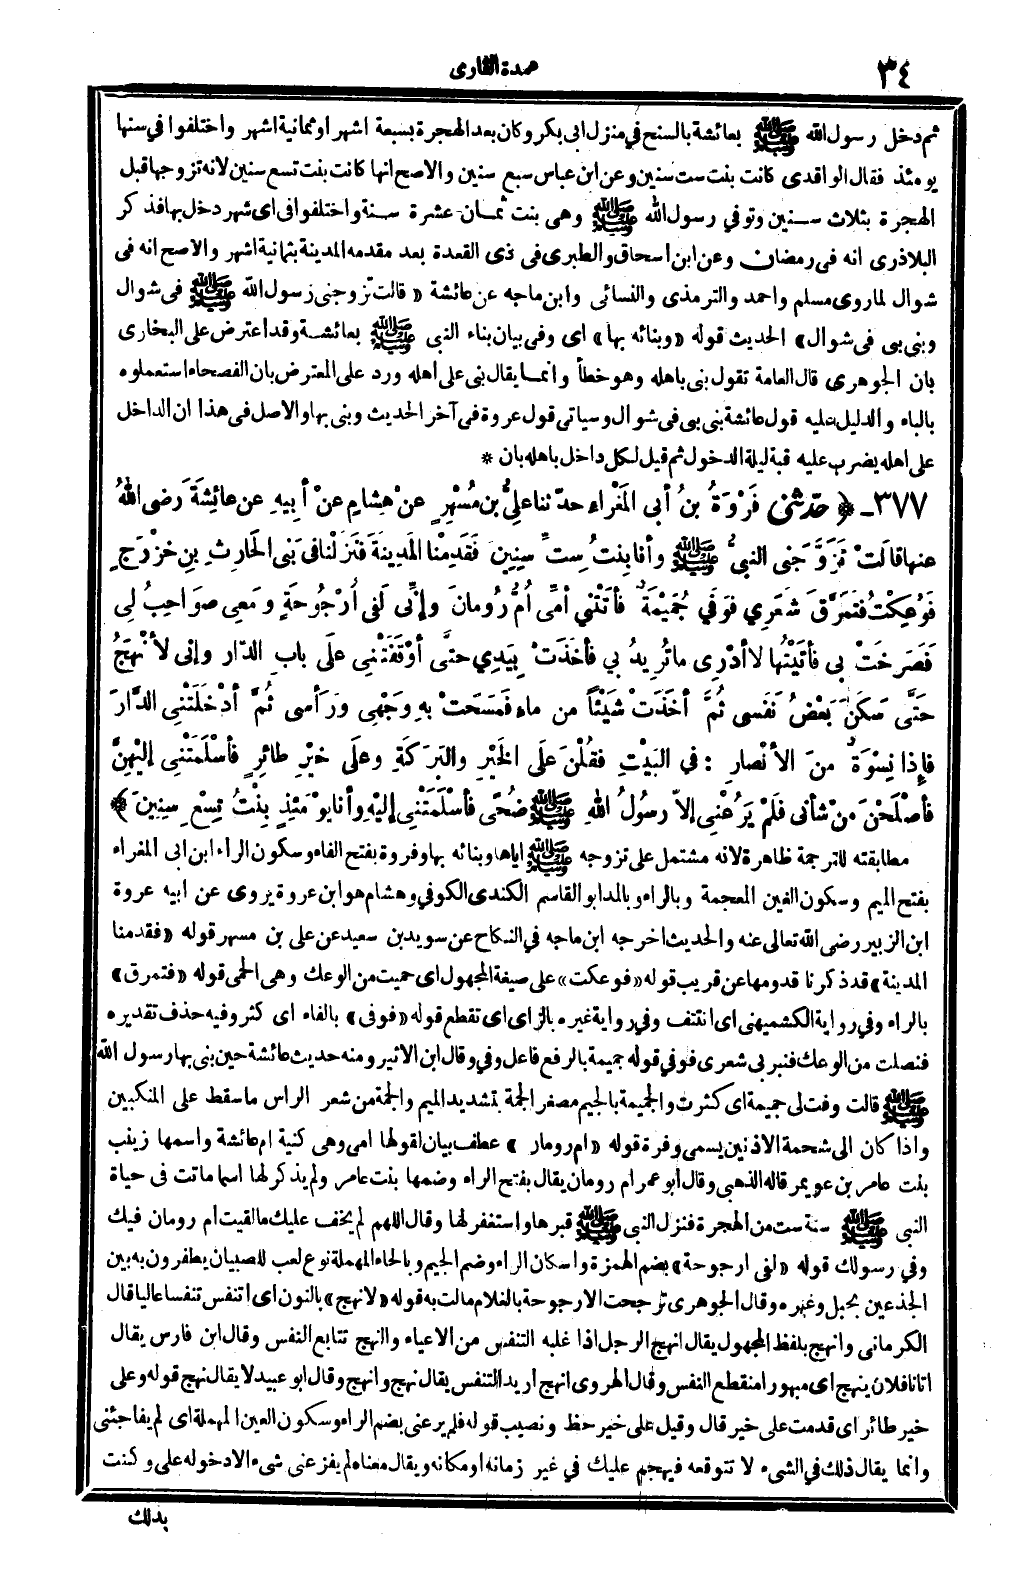 ٣٤
عمدة القارى
ثم دخل رسول الله ﷺ بعائشة بالسنح في منزل ابى بكر وكان بعد الهجرة بسبعة اشهر او ثمانية اشهر واختلفوا في سنها
يومئذ فقال الواقدى كانت بنت ست سنين وعن ابن عباس سبع سنين والاصح انها كانت بنت تسع سنين لانه تزوجها قبل
الهجرة بثلاث سنين وتوفي رسول الله ﷺ وهى بنت ثمان عشرة سنة واختلفوا فى اى شهر دخل بها فذكر
البلاذرى انه فى رمضان وعن ابن اسحاق والطبرى فى ذى القعدة بعد مقدمه المدينة بثمانية اشهر والاصح انه فى
شوال لما روى مسلم واحمد والترمذى والنسائى وابن ماجه عن عائشة «قالت تزوجنى رسول الله ﷺ فى شوال
وبنى بى فى شوال» الحديث قوله «وبنائه بها» اى وفى بيان بناء النبى ﷺ بعائشة وقد اعترض على البخارى
بان الجوهرى قال العامة تقول بنى باهله وهو خطأ وانما يقال بنى على اهله ورد على المعترض بان الفصحاء استعملوه
بالباء والدليل عليه قول عائشة بنى بى فى شوال وسياتى قول عروة فى آخر الحديث وبنى بها والاصل فى هذا ان الداخل
على اهله يضرب عليه قبة ليلة الدخول ثم قيل لكل داخل باهله بان *
٣٧٧ـ ﴿ حدّثنى فَرْوَةُ بنُ أبى المَغْراءِ حدّثنا علىُّ بن مُسْهِرٍ عنْ هِشامٍ عنْ أبيهِ عن عائِشَةَ رضى اللهُ
عنها قالَتْ تَزَوَّجَنى النبىُّ ﷺ وأنا بِنْتُ سِتِّ سِنِينَ فَقَدِمْنا المَدِينَةَ فَنَزَلْنا فى بَنى الحارِثِ بنِ خَزْرَجٍ
فَوُعِكْتُ فتَمَرَّقَ شَعَرِي فَوَفَي جُمَيْمَةٌ فأتَتْنى أمِّى أُمُّ رُومانَ وإنِّى لَفى أُرْجُوحَةٍ ومَعِى صَوَاحِبُ لِى
فَصَرَخَتْ بى فأتَيْتُها لا أدْرِى ما تُرِيدُ بي فأخَذَتْ بِيَدِي حتَّى أوْقَفَتْنِى علَى بابِ الدّارِ وإنى لأُنْهِجُ
حَتَّى سَكَنَ بَعْضُ نَفَسِى ثُمَّ أخَذَتْ شَيْئاً من ماءٍ فَمَسَحَتْ بهِ وَجْهِى ورَأسى ثُمَّ أدْخَلَتْنِى الدَّارَ
فإذا نِسْوَةٌ منَ الأنْصارِ : في البَيْتِ فقُلْنَ عَلَى الخَيْرِ والبَرَكَةِ وعلَى خيْرِ طائِرٍ فأسْلَمَتْنِى إليْهِنَّ
فأصْلَحْنَ منْ شأنى فلَمْ يَرُعْنِى إلاّ رسولُ اللهِ ﷺ ضُحًى فأسْلَمَتْنِى إليْهِ وأنا يَوْمَئِذٍ بِنْتُ تِسْعِ سِنِينَ ﴾
مطابقته للترجمة ظاهرة لانه مشتمل على تزوجه ﷺ اياها وبنائه بها وفروة بفتح الفاء وسكون الراء ابن ابى المغراء
بفتح الميم وسكون الغين المعجمة وبالراء وبالمد ابو القاسم الكندى الكوفي وهشام هو ابن عروة يروى عن ابيه عروة
ابن الزبير رضى الله تعالى عنه والحديث اخرجه ابن ماجه في النكاح عن سويد بن سعيد عن على بن مسهر قوله «فقدمنا
المدينة» قد ذكرنا قدومها عن قريب قوله «فوعكت» على صيغة المجهول اى حميت من الوعك وهى الحمى قوله «فتمرق»
بالراء وفي رواية الكشميهنى اى انتتف وفي رواية غيره بالزاى اى تقطع قوله «فوفى» بالفاء اى كثر وفيه حذف تقديره
فنصلت من الوعك فتربى شعرى فوفي قوله جميمة بالرفع فاعل وفي وقال ابن الاثير ومنه حديث عائشة حين بنى بها رسول الله
ﷺ قالت وفت لى جميمة اى كثرت والجميمة بالجيم مصغر الجمة بتشديد الميم والجمة من شعر الراس ما سقط على المنكبين
واذا كان الى شحمة الاذنين يسمى وفرة قوله «ام رومان» عطف بيان لقولها امى وهى كنية ام عائشة واسمها زينب
بنت عامر بن عويمر قاله الذهبى وقال أبو عمر ام رومان يقال بفتح الراء وضمها بنت عامر ولم يذكر لها اسما ماتت فى حياة
النبى ﷺ سنة ست من الهجرة فنزل النبى ﷺ قبرها واستغفر لها وقال اللهم لم يخف عليك ما لقيت ام رومان فيك
وفي رسولك قوله «لفى ارجوحة» بضم الهمزة واسكان الراء وضم الجيم وبالحاء المهملة نوع لعب للصبيان يطفرون به بين
الجذعين بحبل وغيره وقال الجوهرى ترجحت الارجوحة بالغلام مالت به قوله «لانهج» بالنون اى اتنفس تنفسا عاليا قال
الكرمانى وانهج بلفظ المجهول يقال انهج الرجل اذا غلبه التنفس من الاعياء والنهج تتابع النفس وقال ابن فارس يقال
اتانا فلان ينهج اى مبهورا منقطع النفس وقال الهروى انهج اريد التنفس يقال نهج وانهج وقال ابو عبيد لا يقال نهج قوله وعلى
خير طائر اى قدمت على خير قال وقيل على خير حظ ونصيب قوله فلم يرعنى بضم الراء وسكون العين المهملة اى لم يفاجئنى
وانما يقال ذلك في الشىء لا تتوقعه فيهجم عليك في غير زمانه او مكانه ويقال معناه لم يفزعنى شىء الا دخوله على وكنت
بذلك